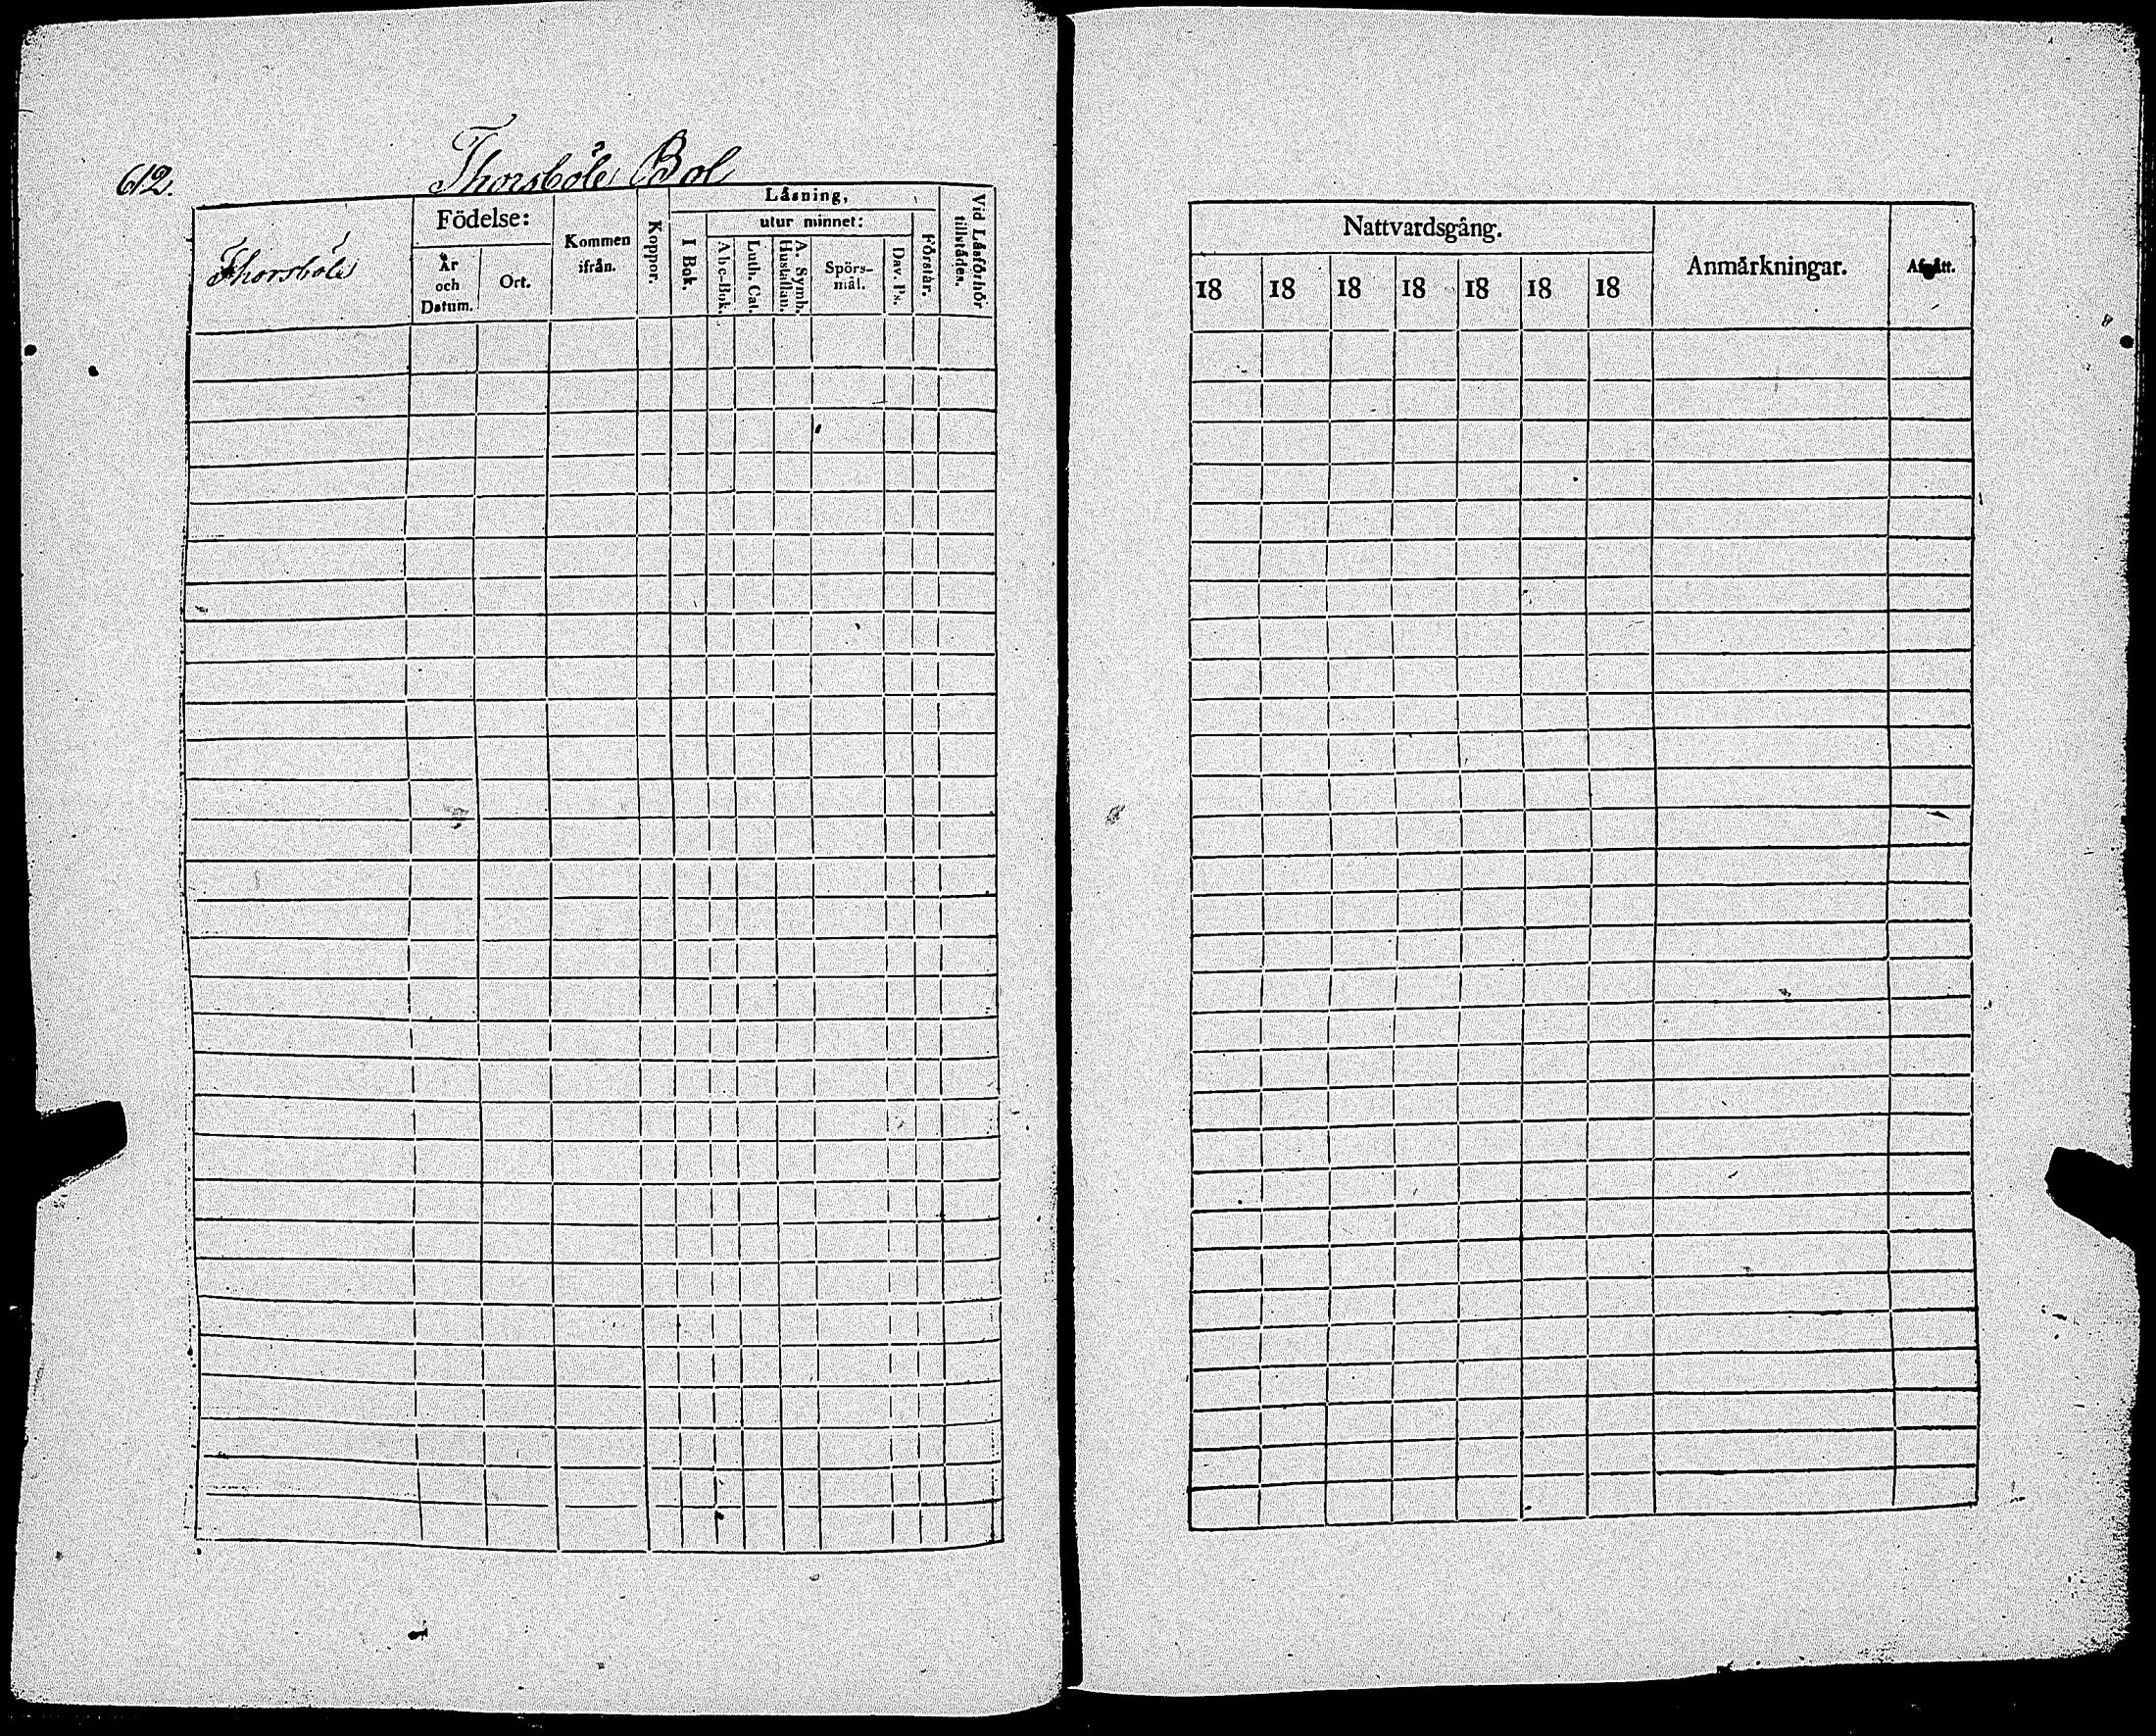 612.
Thorsböle Bol
Thorsböle
Födelse:
År
och
Datum.
Ort.
Kommen
ifrån.
Koppor.
Läsning,
I Bok.
utur minnet:
Abc-Bok.
Luth. Cat.
A. Symb.
Hustaflan.
Spörs-
mål.
Dav. Ps.
Förstår.
Vid Läsförhör
tillstädes.
Nattvardsgång.
18 18 18 18 18 18 18
Anmärkningar.
Afgått.